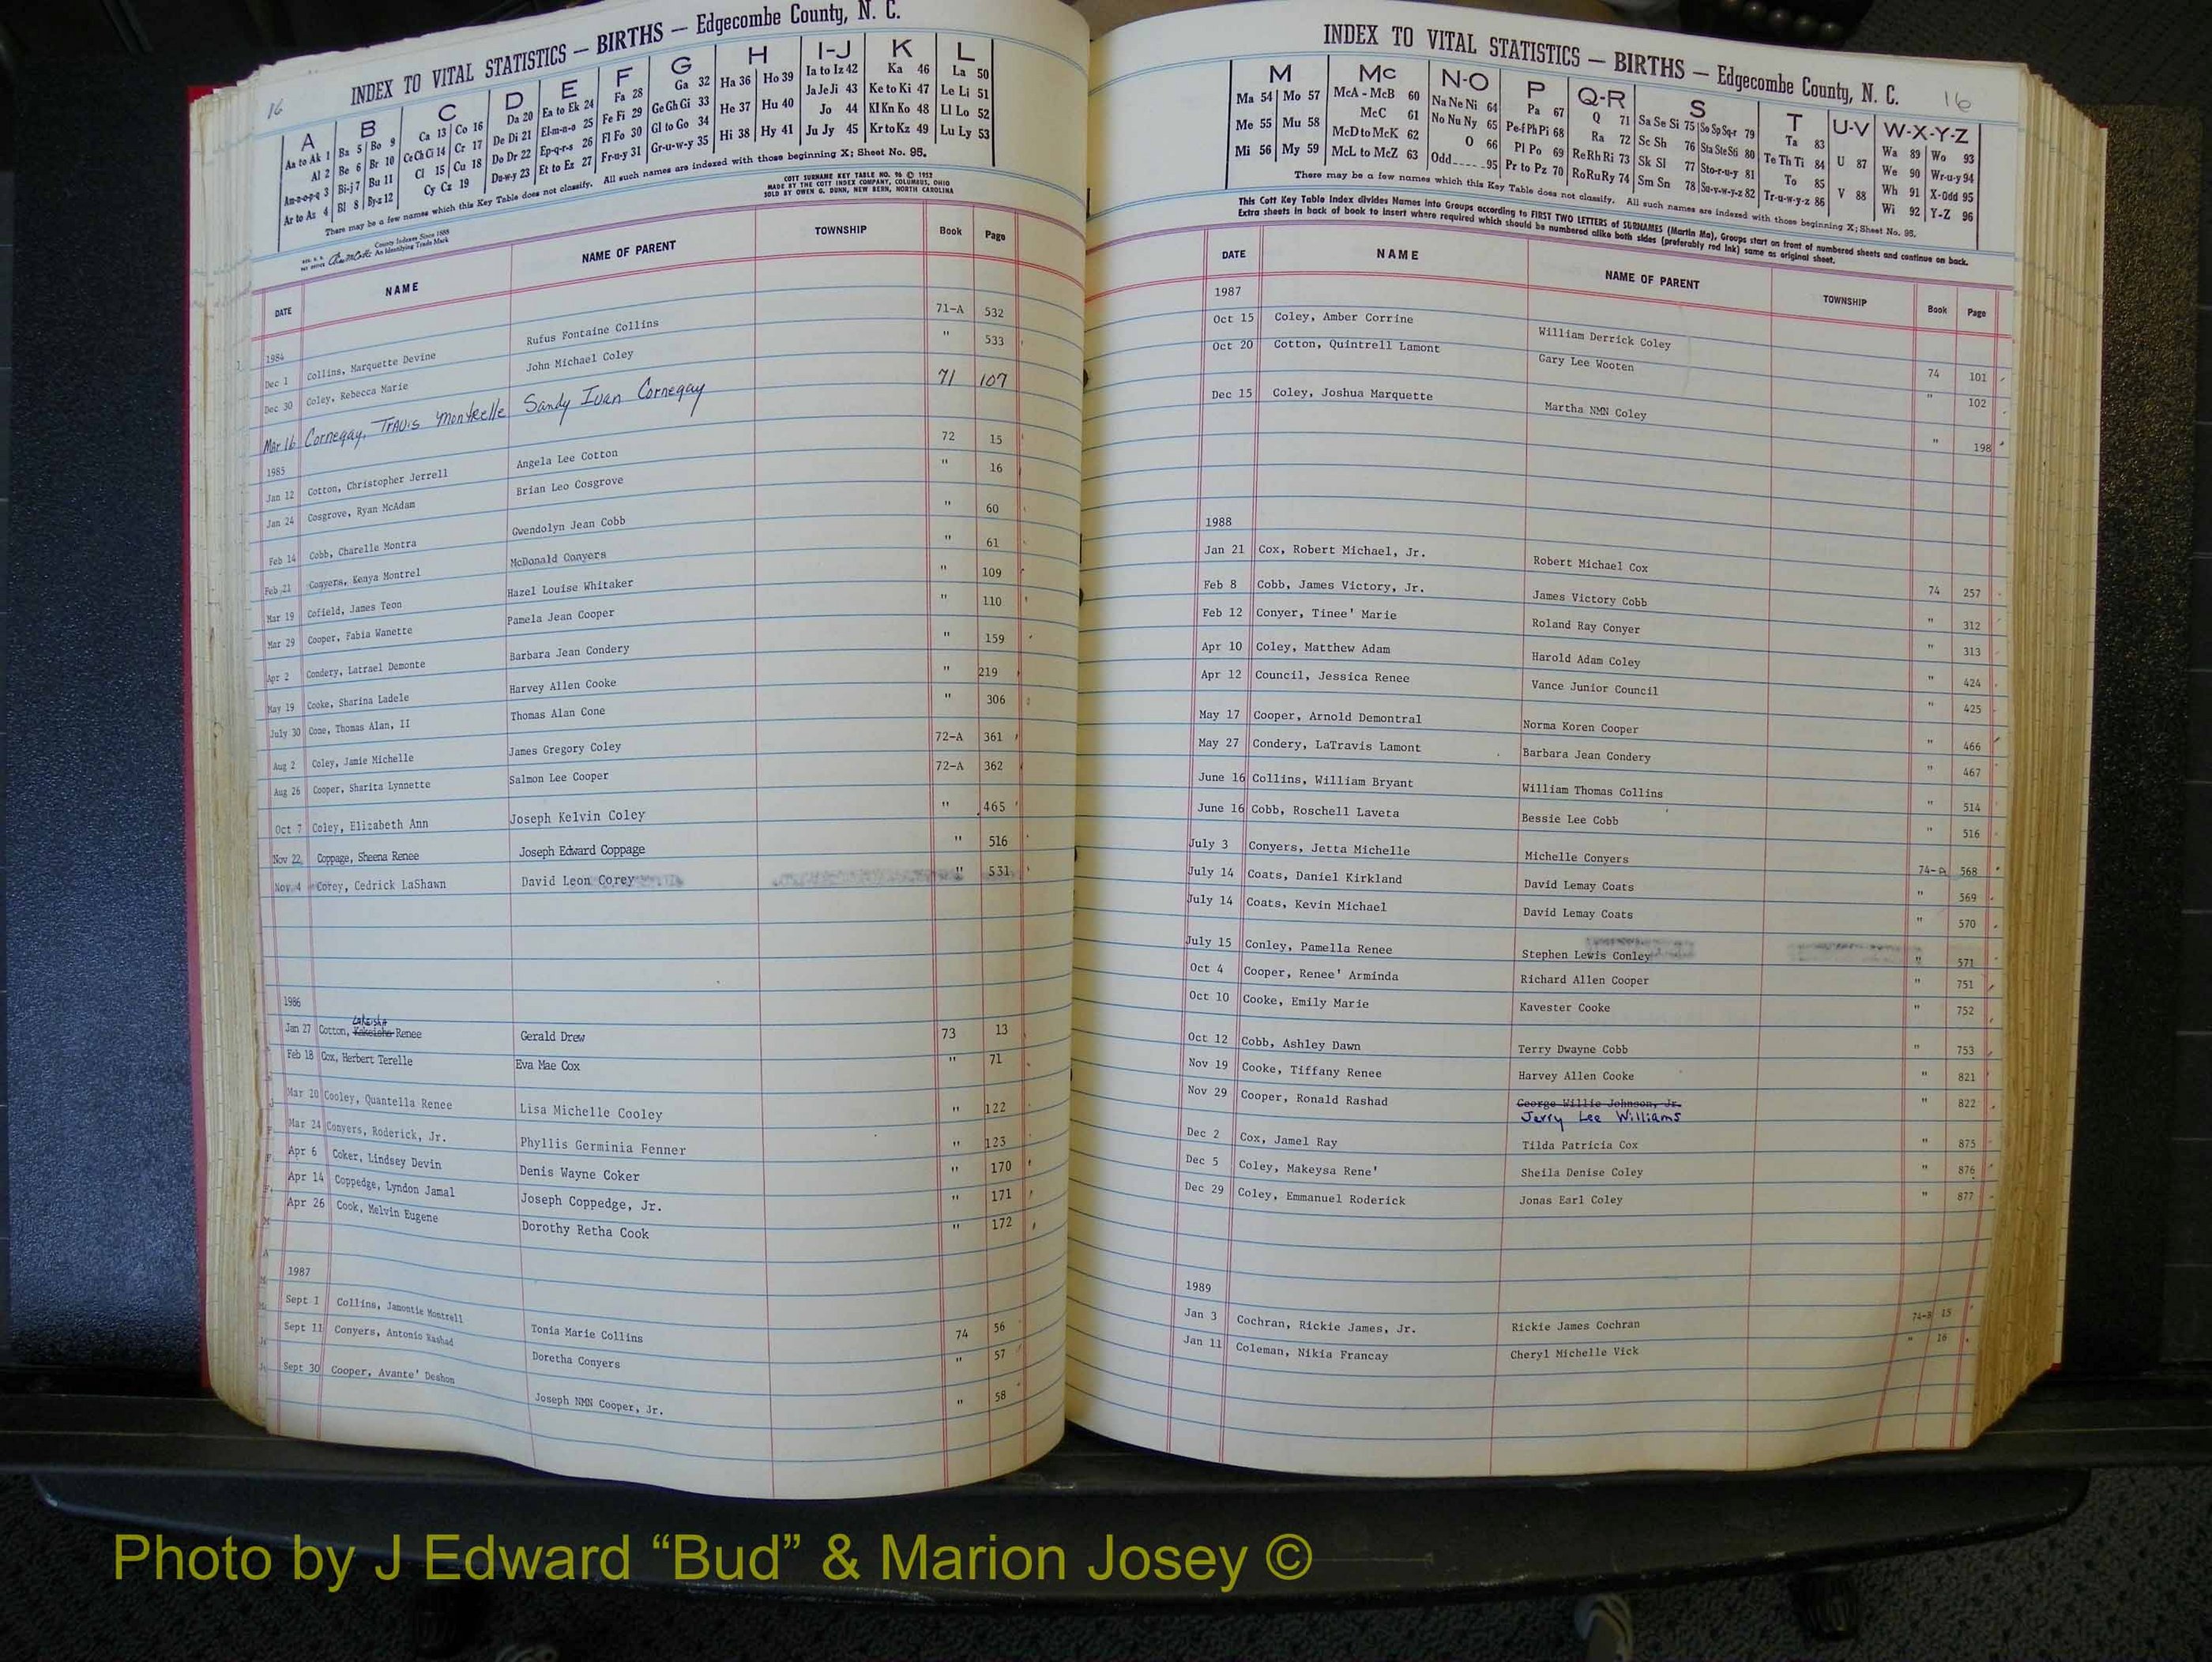 16
INDEX TO VITAL STATISTICS — BIRTHS — Edgecombe County, N. C.
A B C D E F G H I-J K L
Aa to Ak 1 Ba 5 Bo 9 Ca 13 Co 16 Da 20 Ea to Ek 24 Fa 28 Ga 32 Ha 36 Ho 39 Ia to Iz 42 Ka 46 La 50
Al 2 Be 6 Br 10 Ce Ch Ci 14 Cr 17 De Di 21 El-m-n-o 25 Fe Fi 29 Ge Gh Gi 33 He 37 Hu 40 Ja Je Ji 43 Ke to Ki 47 Le Li 51
Am-n-o-p-q 3 Bi-j 7 Bu 11 Cl 15 Cu 18 Do Dr 22 Ep-q-r-s 26 Fl Fo 30 Gl to Go 34 Hi 38 Hy 41 Jo 44 Kl Kn Ko 48 Ll Lo 52
Ar to Az 4 Bl 8 By-z 12 Cy Cz 19 Du-w-y 23 Et to Ez 27 Fr-u-y 31 Gr-u-w-y 35 Ju Jy 45 Kr to Kz 49 Lu Ly 53
There may be a few names which this Key Table does not classify. All such names are indexed with those beginning X; Sheet No. 95.
COTT SURNAME KEY TABLE NO. 96 © 1952
MADE BY THE COTT INDEX COMPANY, COLUMBUS, OHIO
SOLD BY OWEN G. DUNN, NEW BERN, NORTH CAROLINA
County Indexes Since 1888
An Identifying Trade Mark
DATE NAME NAME OF PARENT TOWNSHIP Book Page
1984
Dec 1 Collins, Marquette Devine Rufus Fontaine Collins 71-A 532
Dec 30 Coley, Rebecca Marie John Michael Coley " 533
Mar 16 Cornegay, Travis Montrelle Sandy Ivan Cornegay 71 107
1985
Jan 12 Cotton, Christopher Jerrell Angela Lee Cotton 72 15
Jan 24 Cosgrove, Ryan McAdam Brian Leo Cosgrove " 16
Feb 14 Cobb, Charelle Montra Gwendolyn Jean Cobb " 60
Feb 21 Conyers, Kenya Montrel McDonald Conyers " 61
Mar 19 Cofield, James Teon Hazel Louise Whitaker " 109
Mar 29 Cooper, Fabia Wanette Pamela Jean Cooper " 110
Apr 2 Condery, Latrael Demonte Barbara Jean Condery " 159
May 19 Cooke, Sharina Ladele Harvey Allen Cooke " 219
July 30 Cone, Thomas Alan, II Thomas Alan Cone " 306
Aug 2 Coley, Jamie Michelle James Gregory Coley 72-A 361
Aug 26 Cooper, Sharita Lynnette Salmon Lee Cooper 72-A 362
Oct 7 Coley, Elizabeth Ann Joseph Kelvin Coley " 465
Nov 22 Coppage, Sheena Renee Joseph Edward Coppage " 516
Nov 4 Corey, Cedrick LaShawn David Leon Corey " 531
1986
Lakeisha
Jan 27 Cotton, Kakeisha Renee Gerald Drew 73 13
Feb 18 Cox, Herbert Terelle Eva Mae Cox " 71
Mar 20 Cooley, Quantella Renee Lisa Michelle Cooley " 122
Mar 24 Conyers, Roderick, Jr. Phyllis Germinia Fenner " 123
Apr 6 Coker, Lindsey Devin Denis Wayne Coker " 170
Apr 14 Coppedge, Lyndon Jamal Joseph Coppedge, Jr. " 171
Apr 26 Cook, Melvin Eugene Dorothy Retha Cook " 172
1987
Sept 1 Collins, Jamontie Montrell Tonia Marie Collins 74 56
Sept 11 Conyers, Antonio Rashad Doretha Conyers " 57
Sept 30 Cooper, Avante' Deshon Joseph NMN Cooper, Jr. " 58
INDEX TO VITAL STATISTICS — BIRTHS — Edgecombe County, N. C. 16
M Mc N-O P Q-R S T U-V W-X-Y-Z
Ma 54 Mo 57 McA - McB 60 Na Ne Ni 64 Pa 67 Q 71 Sa Se Si 75 So Sp Sq-r 79 Ta 83 Wa 89 Wo 93
Me 55 Mu 58 McC 61 No Nu Ny 65 Pe-f Ph Pi 68 Ra 72 Sc Sh 76 Sta Ste Sti 80 Te Th Ti 84 U 87 We 90 Wr-u-y 94
Mi 56 My 59 McD to McK 62 O 66 Pl Po 69 Re Rh Ri 73 Sk Sl 77 Sto-r-u-y 81 To 85 V 88 Wh 91 X-Odd 95
McL to McZ 63 Odd 95 Pr to Pz 70 Ro Ru Ry 74 Sm Sn 78 Su-v-w-y-z 82 Tr-u-w-y-z 86 Wi 92 Y-Z 96
There may be a few names which this Key Table does not classify. All such names are indexed with those beginning X; Sheet No. 95.
This Cott Key Table Index divides Names into Groups according to FIRST TWO LETTERS of SURNAMES (Martin Ma), Groups start on front of numbered sheets and continue on back.
Extra sheets in back of book to insert where required which should be numbered alike both sides (preferably red ink) same as original sheet.
DATE NAME NAME OF PARENT TOWNSHIP Book Page
1987
Oct 15 Coley, Amber Corrine William Derrick Coley 74 101
Oct 20 Cotton, Quintrell Lamont Gary Lee Wooten " 102
Dec 15 Coley, Joshua Marquette Martha NMN Coley " 198
1988
Jan 21 Cox, Robert Michael, Jr. Robert Michael Cox 74 257
Feb 8 Cobb, James Victory, Jr. James Victory Cobb " 312
Feb 12 Conyer, Tinee' Marie Roland Ray Conyer " 313
Apr 10 Coley, Matthew Adam Harold Adam Coley " 424
Apr 12 Council, Jessica Renee Vance Junior Council " 425
May 17 Cooper, Arnold Demontral Norma Koren Cooper " 466
May 27 Condery, LaTravis Lamont Barbara Jean Condery " 467
June 16 Collins, William Bryant William Thomas Collins " 514
June 16 Cobb, Roschell Laveta Bessie Lee Cobb " 516
July 3 Conyers, Jetta Michelle Michelle Conyers 74-A 568
July 14 Coats, Daniel Kirkland David Lemay Coats " 569
July 14 Coats, Kevin Michael David Lemay Coats " 570
July 15 Conley, Pamella Renee Stephen Lewis Conley " 571
Oct 4 Cooper, Renee' Arminda Richard Allen Cooper " 751
Oct 10 Cooke, Emily Marie Kavester Cooke " 752
Oct 12 Cobb, Ashley Dawn Terry Dwayne Cobb " 753
Nov 19 Cooke, Tiffany Renee Harvey Allen Cooke " 821
Nov 29 Cooper, Ronald Rashad George Willie Johnson, Jr. " 822
Jerry Lee Williams
Dec 2 Cox, Jamel Ray Tilda Patricia Cox " 875
Dec 5 Coley, Makeysa Rene' Sheila Denise Coley " 876
Dec 29 Coley, Emmanuel Roderick Jonas Earl Coley " 877
1989
Jan 3 Cochran, Rickie James, Jr. Rickie James Cochran 74-B 15
Jan 11 Coleman, Nikia Francay Cheryl Michelle Vick " 16
Photo by J Edward “Bud” & Marion Josey ©